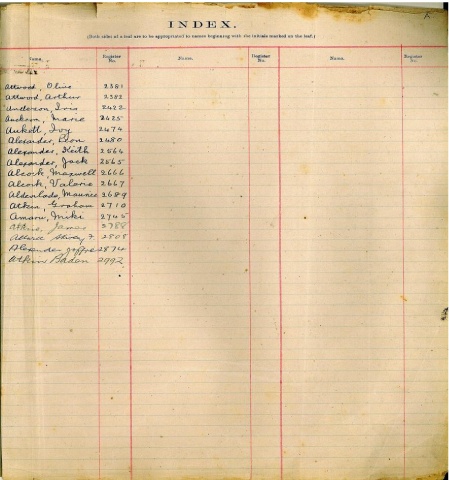 INDEX.
(Both sides of a leaf are to be appropriated to names beginning with the initials marked on the leaf.)
Name. Register No. Name. Register No. Name. Register No.
Attwood, Olive 2381
Attwood, Arthur 2382
Anderson, Iris 2422
Marie 2425
Ankett, Ivy 2474
Alexander, Leon 2480
Alexander, Keith 2564
Alexander, Jack 2565
Alcock, Maxwell 2666
Alcock, Valarie 2667
Maurice 2689
Atkin, Graham 2710
Amani, Mike 2745
Atkins, James 2788
2808
Alexander 2874
Atkins Badan 2992